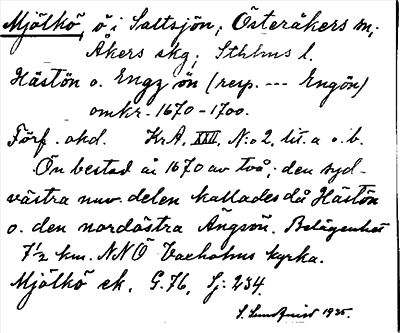 Mjölkö, ö i Saltsjön, Österåkers sn,
Åkers skg, Sthlms l.
Hästön o. Engzön (resp. --- Engön)
omkr. 1670-1700.
Förf. okd. KrA, XXII, N:o 2, lit. a o. b.
Ön bestod åi 1670 av två; den syd-
västra nuv. delen kallades då Hästön
o. den nordöstra Ängsön. Belägenhet
7½ km. NNÖ Vaxholms kyrka.
Mjölkö ek. G. 76, Sj: 234.
S. Lundqvist 1935.